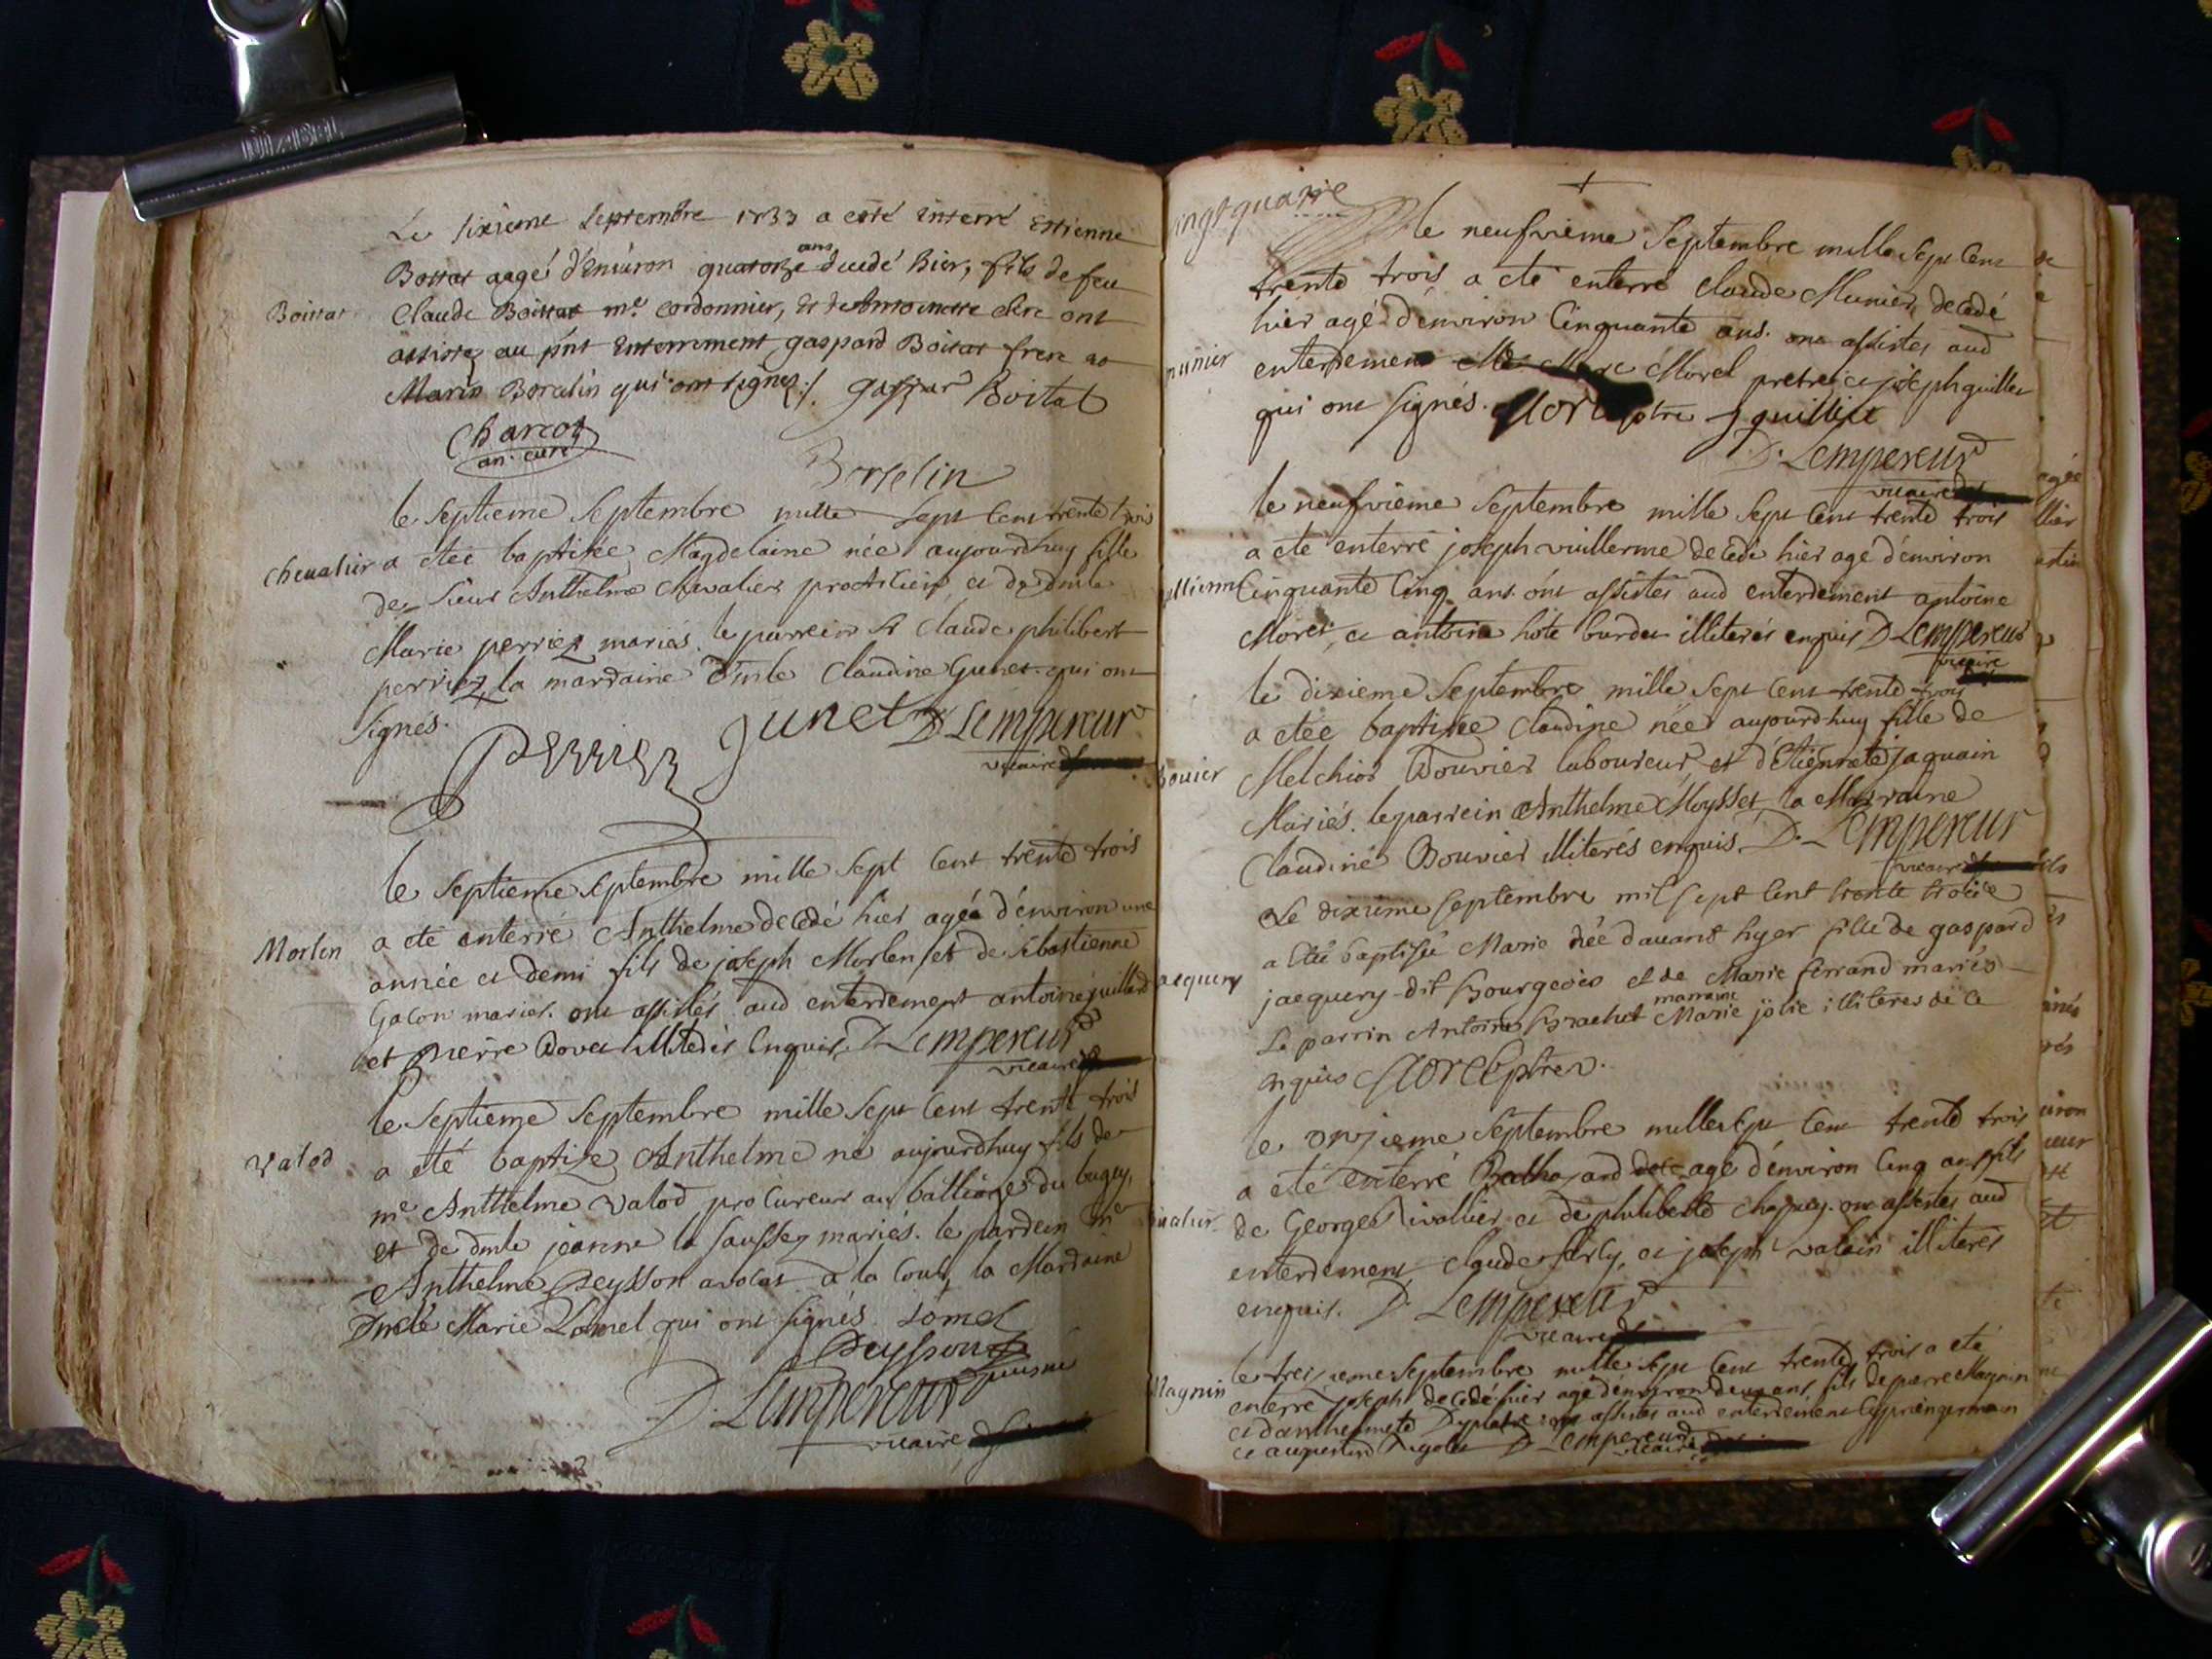 Le sixieme Septembre 1733 a esté Enterré Estienne
Boitat aagé d'Enuiron quatorze ans decedé hier, fils de feu
Boittat
Claude Boittat me. cordonnier, et de Antoinette ont
assistez au pnt Enterrement gaspard Boitat frere et
Marin Borselin qui ont signez ./. gaspar Boitat
Charcot
an. curé
Borselin
le Septieme Septembre mille Sept Cent trente trois
Chevalier
a etée baptisée Magdelaine née aujourdhuy fille
de Sieur Anthelme Chevalier practicien, et de dmle
Marie perrier mariés. le parrein Sr Claude philibert
perrier, la marraine Dmle Claudine Gunet qui ont
Signés.
Perrier Junet D. Lempereur
vicaire
le Septieme Septembre mille Sept Cent trente trois
Morlen
a eté enterré Anthelme decedé hier agée d'environ une
année et demi fils de joseph Morlen et de sebastienne
Gacon mariés. ont assistés aud enterrement antoine juillard
et pierre Bovet illiterés Enquis. D. Lempereur
vicaire
le Septieme Septembre mille Sept Cent trente trois
Valod
a eté baptize Anthelme né aujourdhuy fils de
me Anthelme Valod procureur au balliage du bugey,
et de dmle jeanne la Sausse mariés. le parrein me
Anthelme Peysson avocat à la Cour, la Marraine
Dmlle Marie Lomel qui ont signés. Lomel
Peysson
D. Lempereur
vicaire
vingt quatre
le neufvieme Septembre mille Sept Cent
trente trois a eté enterré Claude Munier, decedé
hier agé d'environ Cinquante ans. ont assistés aud
munier
enterrement Marc Morel pretre et joseph guillet
qui ont signés. Morel ptre J guilliet
D. Lempereur
vicaire
le neufvieme Septembre mille Sept Cent trente trois
a eté enterré joseph vuillerme decedé hier agé d'environ
Cinquante Cinq ans. ont assistés aud enterrement antoine
Moret, et antoine hôte burdet illiterés enquis D. Lempereur
vicaire
le dixieme Septembre mille Sept Cent trente trois
a etée baptisée Claudine née aujourdhuy fille de
bouvier
Melchior Bouvier laboureur, et d'Etiennete jaquain
Mariés. le parrein Anthelme Moysset, la Marraine
Claudine Bouvier illiterés enquis. D. Lempereur
vicaire
Le dixieme septembre mil sept cent trente trois
a été baptisée Marie née d'auant hyer fille de gaspard
jacquery
jacquery dit Bourgeois et de Marie ferrand mariés
Le parrin Antoine Brachet marraine Marie jolie illiteres de ce
enquis Morel ptre.
le onzieme Septembre mille Sept Cent trente trois
a eté enterré Balthazard agé d'environ Cinq ans fils
de George Rivallier et de philiberte Chapuy. ont assistés aud
enterrement, Claude farly, et joseph valein illiterés
enquis. D. Lempereur
vicaire
Magnin
le treizieme Septembre mille Sept Cent trente trois a eté
enterré joseph decedé hier agé d'environ deux ans, fils de pierre Magnin
et d'anthelmete Dyplatre. ont assistés aud enterrement
et augustin Rigolet D. Lempereur
vicaire